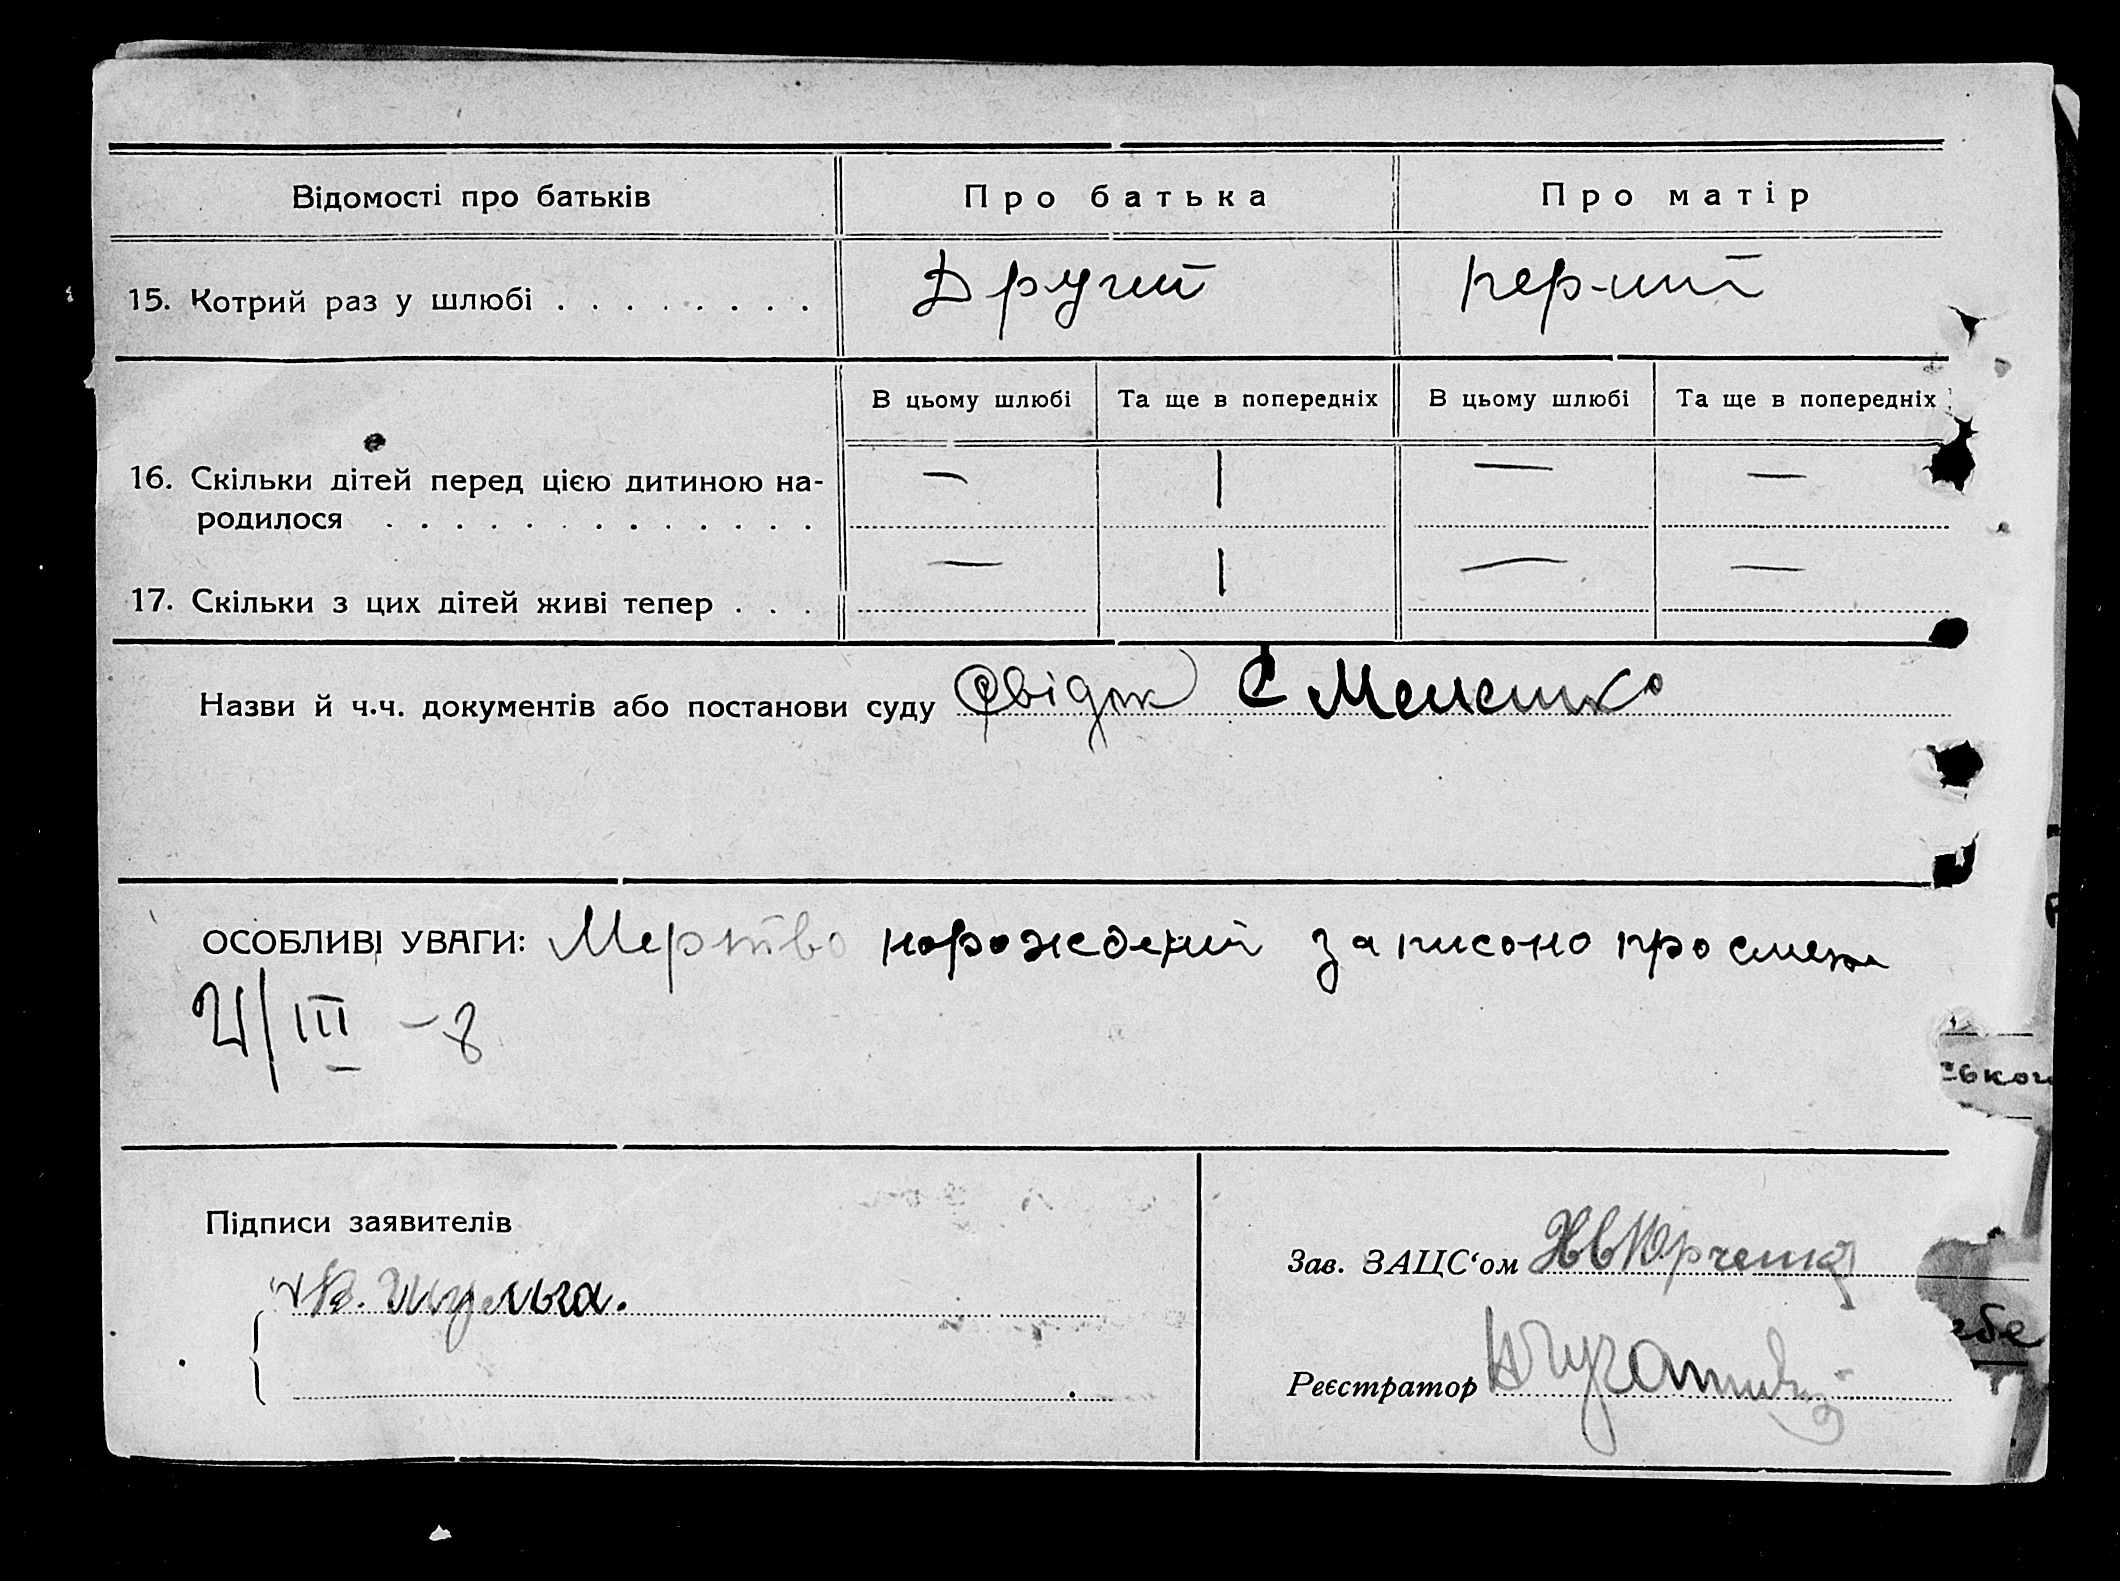 Відомості про батьків
Про батька
Про матір
15. Котрий раз у шлюбі . . . . . . . .
Другий
перший
В цьому шлюбі
Та ще в попередніх
В цьому шлюбі
Та ще в попередніх
16. Скільки дітей перед цією дитиною на-
— | — —
родилося . . . . . . . . . . . . .
17. Скільки з цих дітей живі тепер . . .
— | — —
Назви й ч.ч. документів або постанови суду
ОСОБЛИВІ УВАГИ: Мертво нарождений записано про
21/III - 8
ськог
Підписи заявителів
Шульга.
Зав. ЗАЦС‘ом Юрченко
Реєстратор